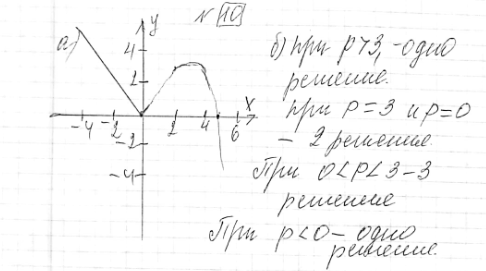 № 10
а)
y
x
4
2
-2
-4
-4 -2 2 4 6
б) При p>3, -одно
решение.
при p=3 и p=0
– 2 решение
При 0<p<3-3
решение
При p<0 – одно
решение.